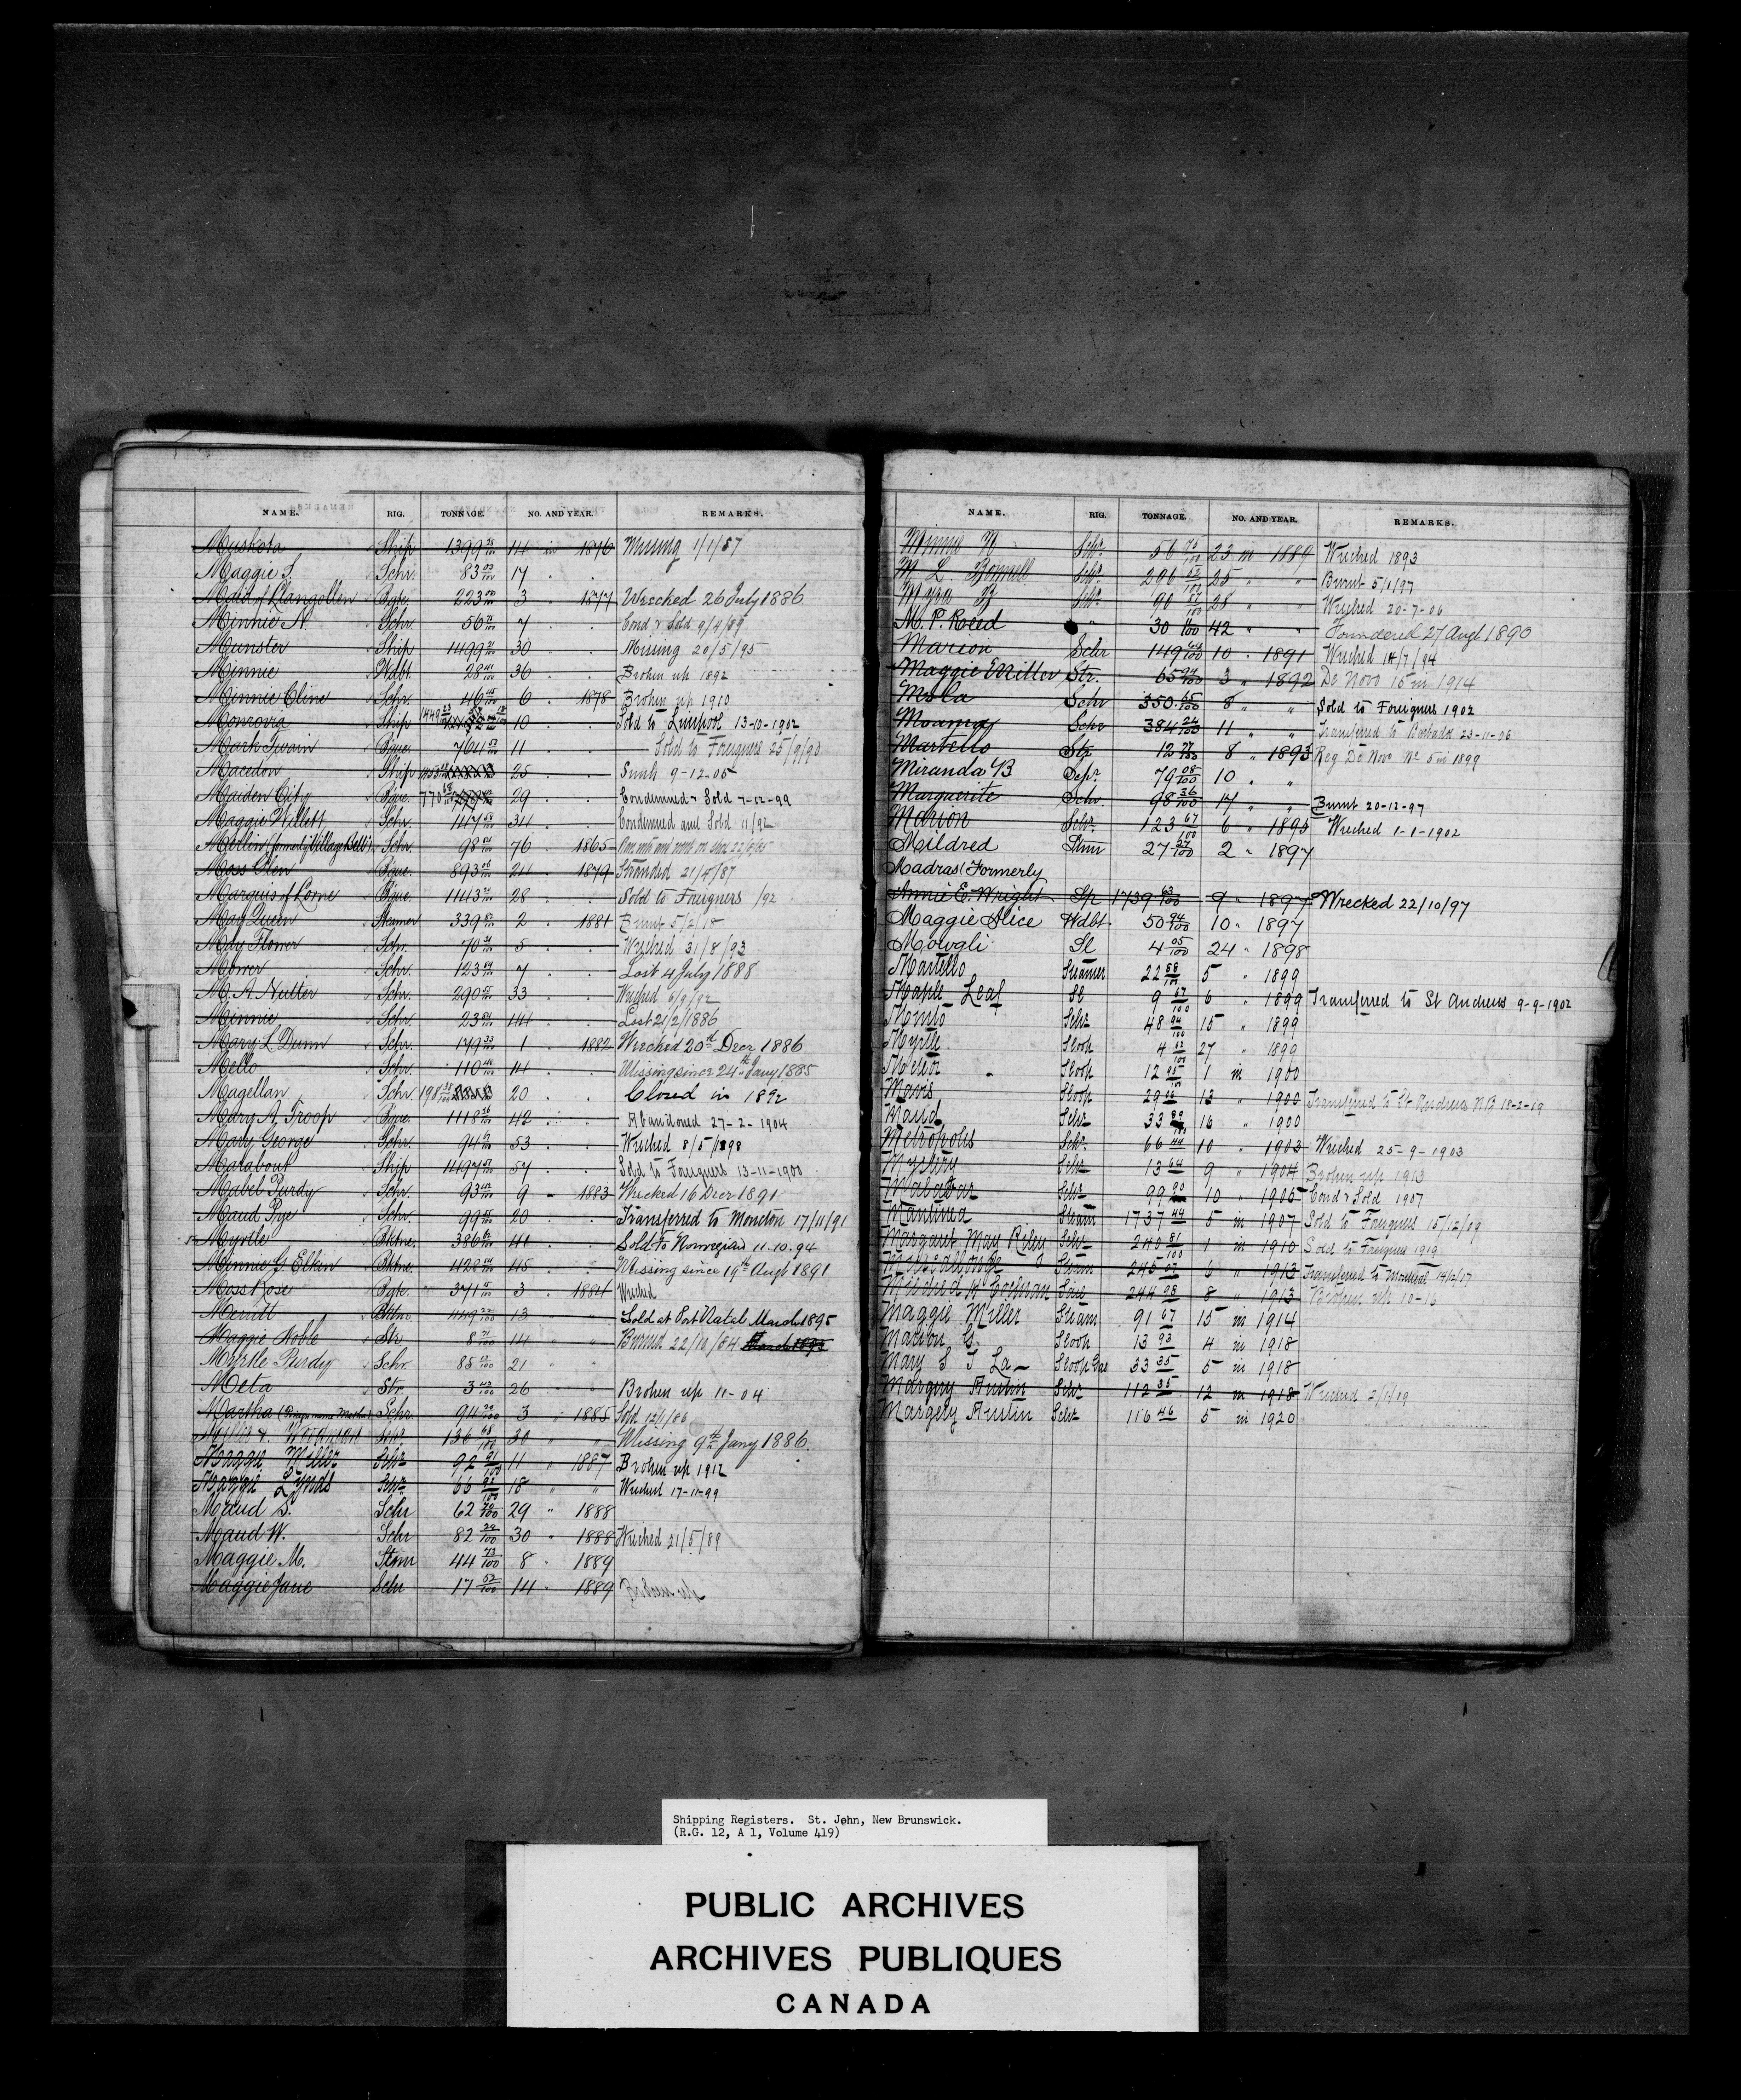 NAME. RIG. TONNAGE. NO. AND YEAR. REMARKS.
Muskota Ship 1399 14 in 1876 Missing 1/1/87
Maggie S. Schr. 83 03/100 17 " "
Maid of Llangollen Bgte. 223 3 " 1877 Wrecked 26 July 1886
Minnie N. Schr 56 7 " " Cond & Sold 9/4/89
Munster Ship 1499 30 " " Missing 20/5/95
Minnie Wdbt. 28 36 " " Broken up 1892
Minnie Cline Schr. 46 6 " 1878 Broken up 1910
Monrovia Ship 1449 10 " " Sold to Liverpool 13-10-1902
Mark Twain Bque. 764 11 " " Sold to Foreigners 25/9/90
Macedon Ship 25 " " Sunk 9-12-05
Maiden City Bque. 770 29 " " Condemned & Sold 7-12-99
Maggie Willett Schr. 147 34 " " Condemned and Sold 11/92
Merlin (formerly Village Belle) Schr. 98 76 " 1865
Moss Glen Bque. 893 24 " 1879 Stranded 21/4/87
Marquis of Lorne Bque. 1143 28 " " Sold to Foreigners /92
May Queen Steamer 339 2 " 1881 Burnt 5/2/18
May Flower Schr. 70 5 " " Wrecked 31/8/93
Mower Schr. 123 7 " " Lost 4 July 1888
M. A. Nutter Schr. 290 33 " " Wrecked 6/9/92
Minnie Schr. 23 44 " " Lost 21/2/1886
Mary L. Dunn Schr. 149 33/100 1 " 1882 Wrecked 20th Decr 1886
Mello Schr. 110 14 " " Missing since 24th Jany 1885
Magellan Schr 198 20 " " Closed in 1892
Mary A. Troop Bque. 1118 42 " " Abandoned 27-2-1904
Mary George Schr. 94 53 " " Wrecked 8/5/1898
Marabout Ship 1497 57 " " Sold to Foreigners 13-11-1900
Mabel Purdy Schr. 93 9 " 1883 Wrecked 16 Decr 1891
Maud Pye Schr. 99 20 " " Transferred to Moncton 17/11/91
Myrtle Bktne. 386 41 " " Sold to Norwegian 11.10.94
Minnie G. Elkin Bktne. 428 45 " " Missing since 19th Augt 1891
Moss Rose Bgte. 371 3 " 1884 Wrecked
Merritt Bktne. 449 22/100 13 " " Sold at Port Natal March 1895
Maggie Noble Str. 8 71/100 14 " " Burned 22/10/84 March 1895
Myrtle Purdy Schr. 85 21 " "
Meta Str. 3 42/100 26 " " Broken up 11-04
Martha Schr. 94 3 " 1885 Sold 12/1/86
Schr 136 30 " " Missing 9th Jany 1886
Maggie Miller Schr 92 91/100 11 " 1887 Broken up 1912
Maggie Lynds Schr 66 92/100 18 " " Wrecked 17-11-99
Maud S. Schr 62 29 " 1888
Maud W. Schr 82 29/100 30 " 1888 Wrecked 21/5/89
Maggie M. Stmr 44 73/100 8 " 1889
Maggie Jane Schr 17 52/100 14 " 1889 Broken up
NAME. RIG. TONNAGE. NO. AND YEAR. REMARKS.
Minnie Schr 56 75/100 23 in 1889 Wrecked 1893
M L Bonnell Schr 296 52/100 25 " " Burnt 5/1/97
Myra B Schr 90 28 " " Wrecked 20-7-06
M. P. Reed " 30 42 " " Foundered 27 Augt 1890
Marion Schr 149 10 " 1891 Wrecked 14/7/94
Maggie Miller Str. 65 3 " 1892 De Novo 15 in 1914
Mola Schr 350 65/100 8 " " Sold to Foreigners 1902
Moama Schr 384 24/100 11 " " Transferred to Barbados 23-11-06
Martello Str 12 8 " 1893 Reg De Novo No 5 in 1899
Miranda B Schr 79 08/100 10 " "
Marguerite Schr 98 36/100 17 " " Burnt 20-12-97
Marion Schr 123 67/100 6 " 1895 Wrecked 1-1-1902
Mildred Stmr 27 27/100 2 " 1897
Madras (Formerly
Annie E. Wright Sp 1739 63/100 9 " 1897 Wrecked 22/10/97
Maggie Alice Wdbt 50 94/100 10 " 1897
Mowgli Sl 4 05/100 24 " 1898
Martello Steamer 22 88/100 5 " 1899
Maple Leaf Sl 9 67/100 6 " 1899 Transferred to St Andrews 9-9-1902
Schr 48 94/100 15 " 1899
Myrtle Sloop 4 27 " 1899
Meteor Sloop 12 95/100 1 in 1900
Mavis Sloop 29 13 " 1900 Transferred to St Andrews NB 18-2-19
Maud Schr 33 89/100 16 " 1900
Metropolis Schr 66 44 10 " 1903 Wrecked 25-9-1903
Mystery Schr 13 64 9 " 1904 Broken up 1913
Malabar Schr 99 90 10 " 1905 Cond & Sold 1907
Mantinea Steam 1737 44 5 in 1907 Sold to Foreigners 15/12/09
Margaret May Riley Schr 240 81/100 1 in 1910 Sold to Foreigners 1919
Steam 245 6 " 1913 Transferred to Montreal 14/2/17
Mildred H Cochran Scie 244 28 8 " 1913 Broken up 10-16
Maggie Miller Steam 91 67 15 in 1914
Marion G. Sloop 13 93 4 in 1918
Mary S T La Sloop Gas 33 35 5 in 1918
Margery Austin Schr 112 35 12 in 1918 Wrecked 2/1/19
Margery Austin Schr 116 46 5 in 1920
Shipping Registers. St. John, New Brunswick.
(R.G. 12, A 1, Volume 419)
PUBLIC ARCHIVES
ARCHIVES PUBLIQUES
CANADA